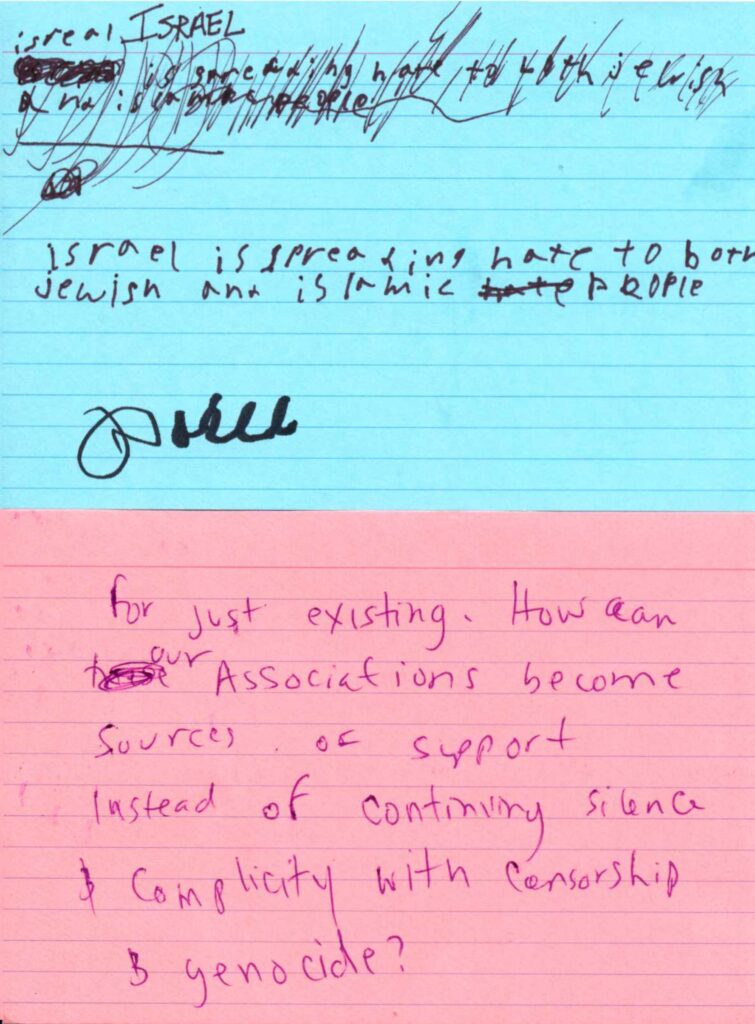 isreal ISRAEL
is spreading hate to both jewish
and islamic people
israel is spreading hate to both
jewish and islamic hate PEOPLE
for just existing. How can
our
Associations become
Sources of support
Instead of continuing silence
& Complicity with Censorship
& genocide?